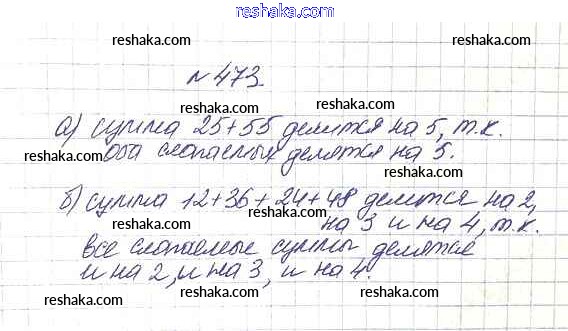 reshaka.com
reshaka.com reshaka.com
№ 473
reshaka.com reshaka.com
а) сумма 25+55 делится на 5, т.к.
оба слагаемых делятся на 5.
reshaka.com reshaka.com
б) сумма 12+36+24+48 делится на 2,
на 3 и на 4, т.к.
reshaka.com reshaka.com
все слагаемые суммы делятся
и на 2, и на 3, и на 4.
reshaka.com reshaka.com